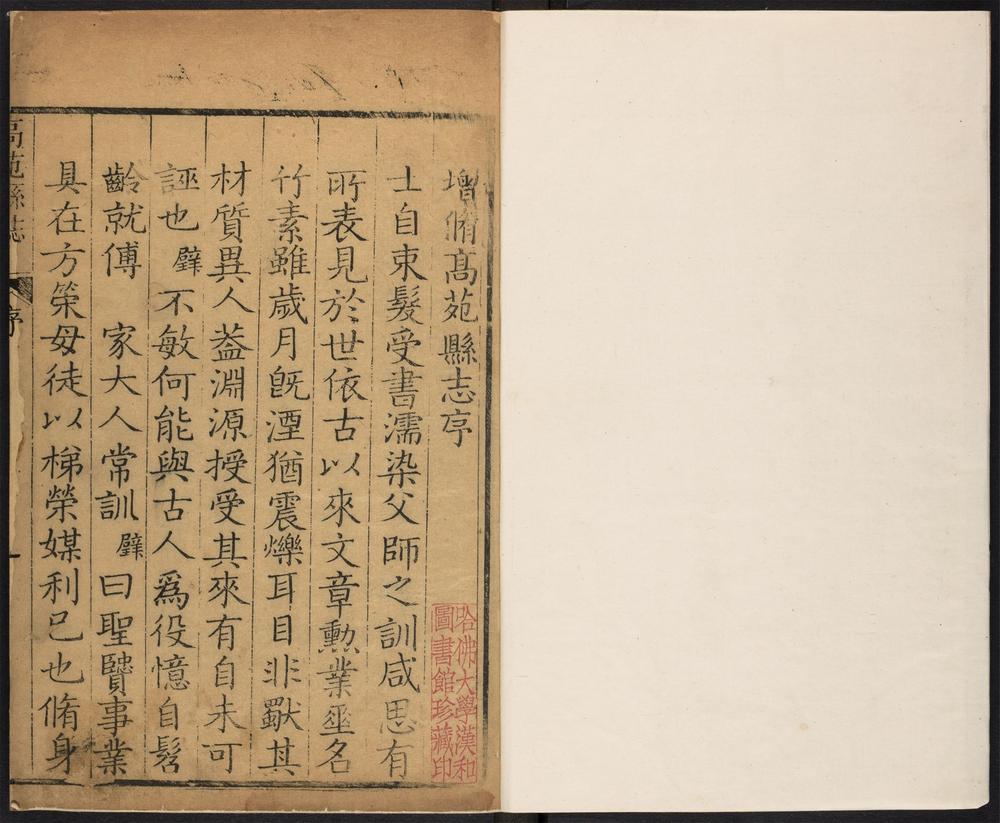 增脩高苑縣志序
士自束髮受書濡染父師之訓咸思有
所表見於世依古以來文章勲業垂名
竹素雖歲月旣湮猶震爍耳目非獸其
材質異人葢淵源授受其來有自未可
誣也 嬖 不敏何能與古人爲役憶自髫
齡就傅 家大人常訓 嬖 曰聖賢事業
具在方䇿毋徒以梯榮媒利已也脩身
高苑縣誌
序
一
哈佛大學漢和
圖書館珍藏印